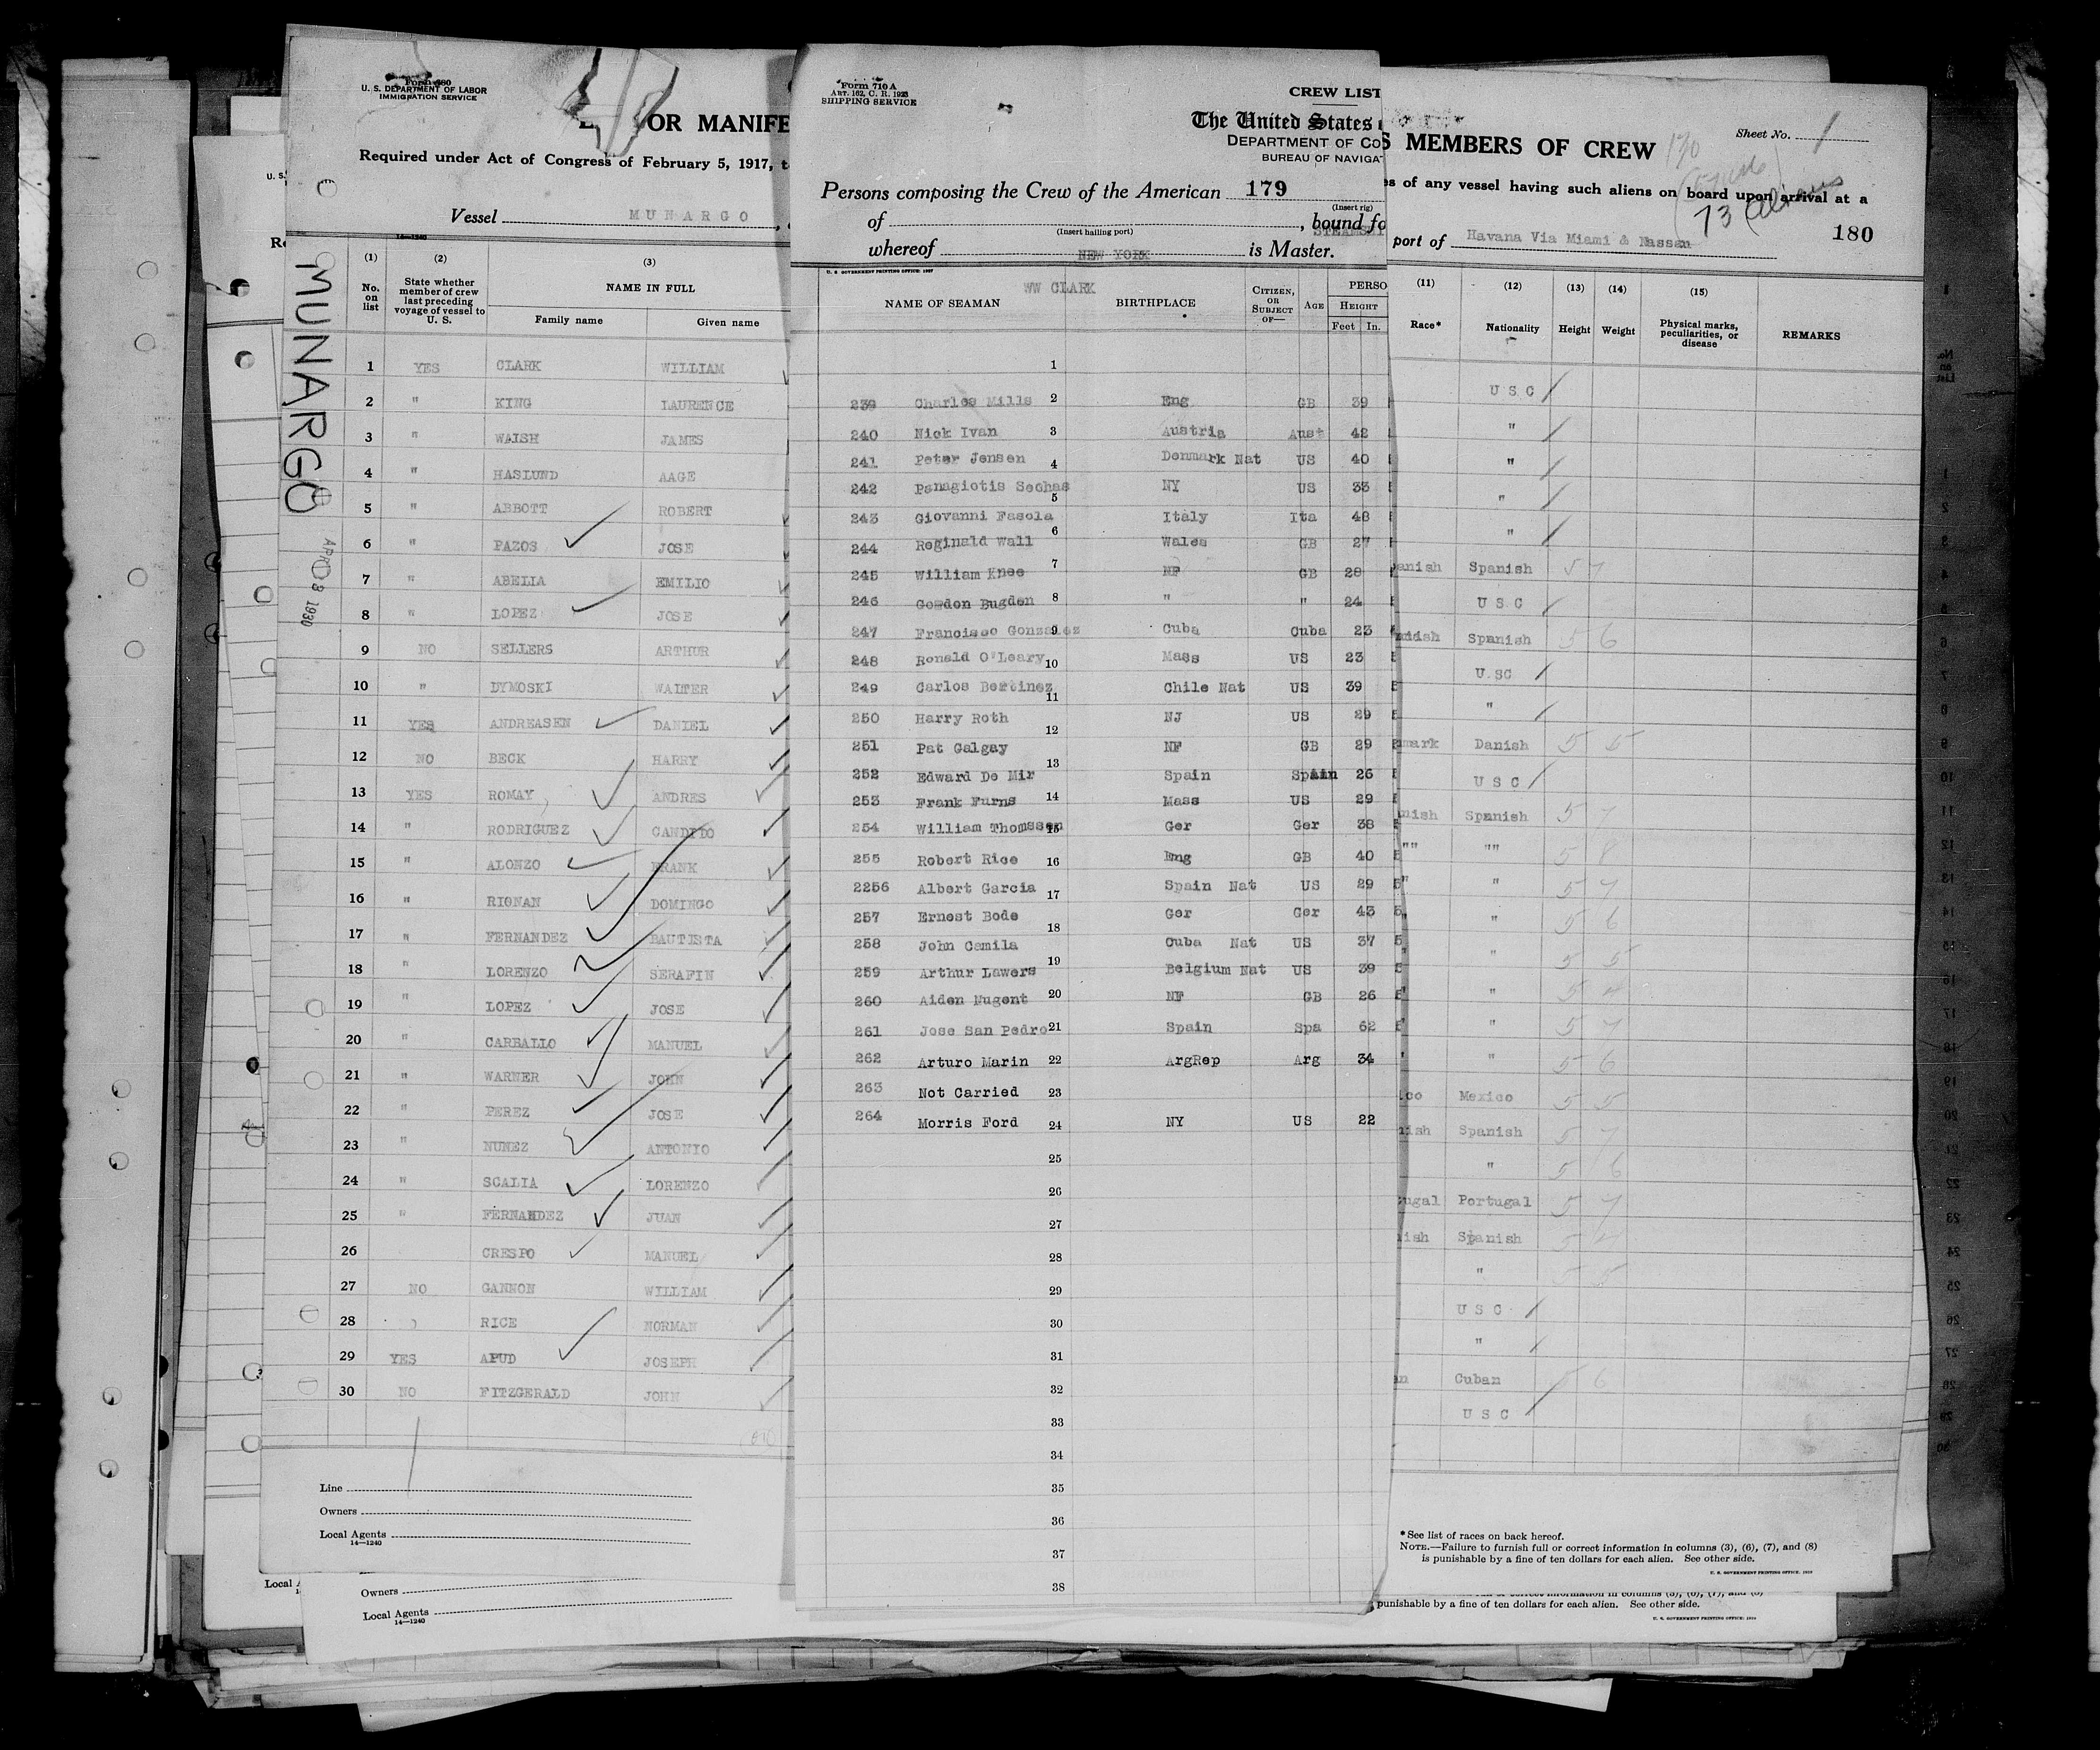 Form 680
U. S. DEPARTMENT OF LABOR
IMMIGRATION SERVICE
OR MANIFE
Required under Act of Congress of February 5, 1917, t
Vessel MUNARGO
MUNARGO
APR 8 1930
14—1240
(1) (2) (3)
No. on list
State whether member of crew last preceding voyage of vessel to U. S.
NAME IN FULL
Family name Given name
1 YES CLARK WILLIAM
2 " KING LAURENCE
3 " WAISH JAMES
4 " HASLUND AAGE
5 " ABBOTT ROBERT
6 " PAZOS JOSE
7 " ABELIA EMILIO
8 " LOPEZ JOSE
9 NO SELLERS ARTHUR
10 " DYMOSKI WALTER
11 YES ANDREASEN DANIEL
12 NO BECK HARRY
13 YES ROMAY ANDRES
14 " RODRIGUEZ CANDIDO
15 " ALONZO FRANK
16 " RIONAN DOMINGO
17 " FERNANDEZ BAUTISTA
18 " LORENZO SERAFIN
19 " LOPEZ JOSE
20 " CARBALLO MANUEL
21 " WARNER JOHN
22 " PEREZ JOSE
23 " NUNEZ ANTONIO
24 " SCALIA LORENZO
25 " FERNANDEZ JUAN
26 CRESPO MANUEL
27 NO GANNON WILLIAM
28 RICE NORMAN
29 YES APUD JOSEPH
30 NO FITZGERALD JOHN
Line
Owners
Local Agents
14—1240
Owners
Local Agents
14—1240
Form 710 A
ART. 162, C. R. 1923
SHIPPING SERVICE
CREW LIST
The United States
DEPARTMENT OF CO
BUREAU OF NAVIGAT
Persons composing the Crew of the American 179
(Insert rig)
of , bound fo
(Insert hailing port)
STEAMSHI
whereof NEW YORK is Master.
U. S. GOVERNMENT PRINTING OFFICE: 1927
WW CLARK
NAME OF SEAMAN BIRTHPLACE CITIZEN, OR SUBJECT OF— AGE PERSO
HEIGHT
Feet In.
1
239 Charles Mills 2 Eng GB 39
240 Nick Ivan 3 Austria Aust 42
241 Peter Jensen 4 Denmark Nat US 40
242 Panagiotis Sechas 5 NY US 33
243 Giovanni Fasola 6 Italy Ita 48
244 Reginald Wall Wales GB 27
245 William Knee 7 NF GB 28
246 Gowdon Bugden 8 " " 24
247 Francisco Gonzalez 9 Cuba Cuba 23
248 Ronald O'Leary 10 Mass US 23
249 Carlos Bertinez 11 Chile Nat US 39
250 Harry Roth 12 NJ US 29
251 Pat Galgay 13 NF GB 29
252 Edward De Mir Spain Spain 26
253 Frank Furns 14 Mass US 29
254 William Thomssen 15 Ger Ger 38
255 Robert Rice 16 Eng GB 40
2256 Albert Garcia 17 Spain Nat US 29
257 Ernest Bode 18 Ger Ger 43
258 John Camila Cuba Nat US 37
259 Arthur Lawers 19 Belgium Nat US 39
260 Aiden Nugent 20 NF GB 26
261 Jose San Pedro 21 Spain Spa 62
262 Arturo Marin 22 ArgRep Arg 34
263 Not Carried 23
264 Morris Ford 24 NY US 22
25
26
27
28
29
30
31
32
33
34
35
36
37
38
S MEMBERS OF CREW
Sheet No. 1
es of any vessel having such aliens on board upon arrival at a
73 Aliens
180
port of Havana Via Miami & Nassau
(11) (12) (13) (14) (15)
Race* Nationality Height Weight Physical marks, peculiarities, or disease REMARKS
U S C
"
"
"
"
anish Spanish 5 7
U S C
Spanish 5 6
U SC
"
mark Danish 5 5
U S C
nish Spanish 5 7
"" "" 5 8
" " 5 7
" 5 6
" 5 5
" " 5 4
" 5 7
" 5 6
ico Mexico 5 5
nish Spanish 5 7
" 5 6
ugal Portugal 5 7
ish Spanish 5 4
" 5 5
U S C
"
an Cuban 5 6
U S C
*See list of races on back hereof.
NOTE.—Failure to furnish full or correct information in columns (3), (6), (7), and (8)
is punishable by a fine of ten dollars for each alien. See other side.
U. S. GOVERNMENT PRINTING OFFICE: 1929
punishable by a fine of ten dollars for each alien. See other side.